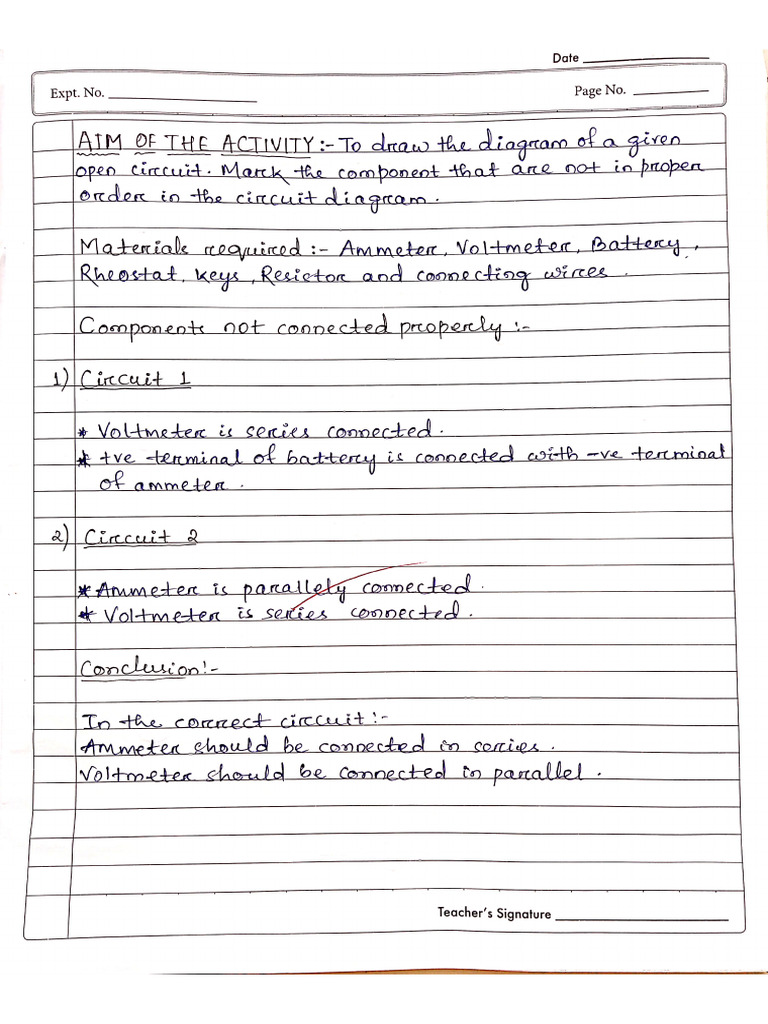 Date
Expt. No.
Page No.
AIM OF THE ACTIVITY:- To draw the diagram of a given
open circuit. Mark the component that are not in proper
order in the circuit diagram.
Materials required:- Ammeter, Voltmeter, Battery,
Rheostat, keys, Resistor and connecting wires.
Components not connected properly:-
1) Circuit 1
* Voltmeter is series connected.
* +ve terminal of battery is connected with -ve terminal
of ammeter.
2) Circuit 2
* Ammeter is parallely connected.
* Voltmeter is series connected.
Conclusion:-
In the correct circuit:-
Ammeter should be connected in series.
Voltmeter should be connected in parallel.
Teacher's Signature